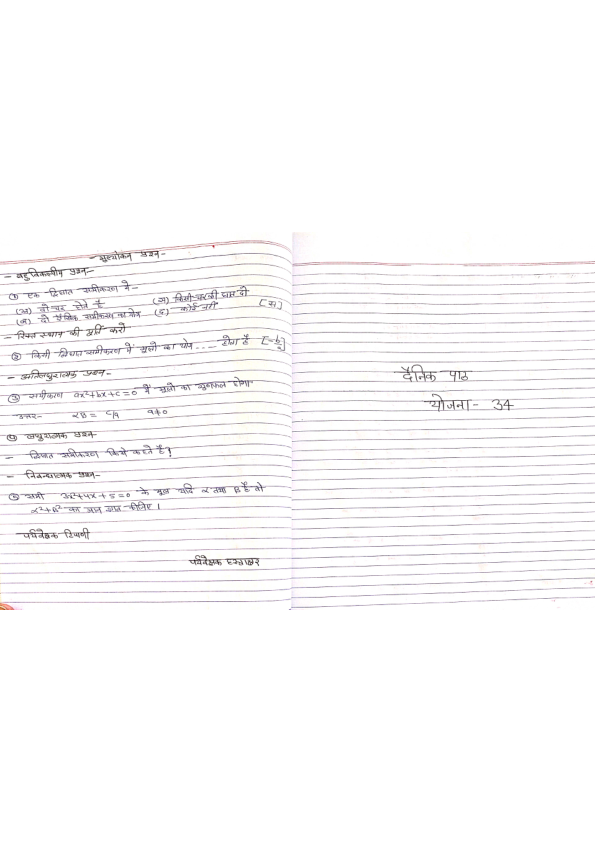 - मूल्यांकन प्रश्न-
- बहुविकल्पीय प्रश्न-
① एक द्विघात समीकरण में-
(अ) दो पद होते हैं (स) किसी चर की घात दो
(ब) दो रैखिक समीकरण का योग (द) कोई नहीं [स]
- रिक्त स्थान की पूर्ति करो
② किसी द्विघात समीकरण में मूलों का योग ---- होगा है [-b/a]
- अतिलघुरात्मक प्रश्न-
③ समीकरण ax²+bx+c=0 में मूलों का गुणनफल होगा-
उत्तर- αβ = c/a a≠0
④ लघुरात्मक प्रश्न-
- द्विघात समीकरण किसे कहते हैं?
- निबन्धात्मक प्रश्न-
⑤ समी 3x²+4x+5=0 के मूल यदि α तथा β हैं तो
α²+β² का मान ज्ञात कीजिए।
पर्यवेक्षक टिप्पणी
पर्यवेक्षक हस्ताक्षर
दैनिक पाठ
योजना- 34